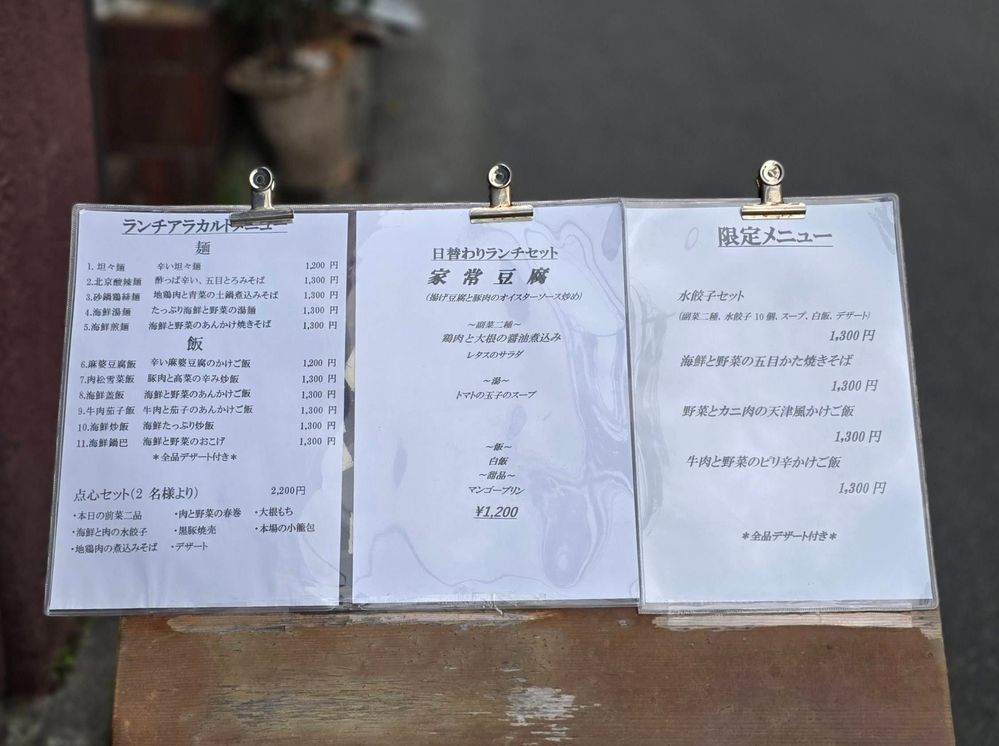 ランチアラカルトメニュー
麺
1.坦々麺 辛い坦々麺 1,200 円
2.北京酸辣麺 酢っぱ辛い、五目とろみそば 1,300 円
3.砂鍋鶏絲麺 地鶏肉と青菜の土鍋煮込みそば 1,300 円
4.海鮮湯麺 たっぷり海鮮と野菜の湯麺 1,300 円
5.海鮮煎麺 海鮮と野菜のあんかけ焼きそば 1,300 円
飯
6.麻婆豆腐飯 辛い麻婆豆腐のかけご飯 1,200 円
7.肉松雪菜飯 豚肉と高菜の辛み炒飯 1,300 円
8.海鮮盖飯 海鮮と野菜のあんかけご飯 1,300 円
9.牛肉茄子飯 牛肉と茄子のあんかけご飯 1,300 円
10.海鮮炒飯 海鮮たっぷり炒飯 1,300 円
11.海鮮鍋巴 海鮮と野菜のおこげ 1,300 円
＊全品デザート付き＊
点心セット(2 名様より) 2,200円
・本日の前菜二品 ・肉と野菜の春巻 ・大根もち
・海鮮と肉の水餃子 ・黒豚焼売 ・本場の小籠包
・地鶏肉の煮込みそば ・デザート
日替わりランチセット
家常豆腐
(揚げ豆腐と豚肉のオイスターソース炒め)
～副菜二種～
鶏肉と大根の醤油煮込み
レタスのサラダ
～湯～
トマトの玉子のスープ
～飯～
白飯
～甜品～
マンゴープリン
¥1,200
限定メニュー
水餃子セット
(副菜二種、水餃子 10 個、スープ、白飯、デザート)
1,300 円
海鮮と野菜の五目かた焼きそば
1,300 円
野菜とカニ肉の天津風かけご飯
1,300 円
牛肉と野菜のピリ辛かけご飯
1,300 円
＊全品デザート付き＊